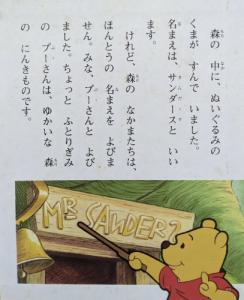 森の 中に、ぬいぐるみの
くまが すんで いました。
名まえは、サンダースと いい
ます。
けれど、森の なかまたちは、
ほんとうの 名まえを よびま
せん。みな、プーさんと よび
ました。ちょっと ふとりぎみ
の プーさんは、ゆかいな 森
の にんきものです。
MR SANDERZ